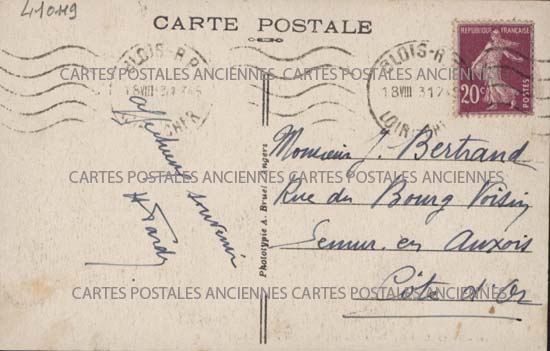 41019
CARTE POSTALE
BLOIS-R.P.
18 VIII 31
LOIR-&-CHER
BLOIS-R.P.
18 VIII 31
LOIR-&-CHER
REPUBLIQUE FRANÇAISE
20c
POSTES
affectueux souvenir
Monsieur J. Bertrand
Rue du Bourg Voisin
Semur en Auxois
Côte d'Or
Phototypie A. Bruel Angers
CARTES POSTALES ANCIENNES CARTES POSTALES ANCIENNES
CARTES POSTALES ANCIENNES CARTES POSTALES ANCIENNES
CARTES POSTALES ANCIENNES CARTES POSTALES ANCIENNES